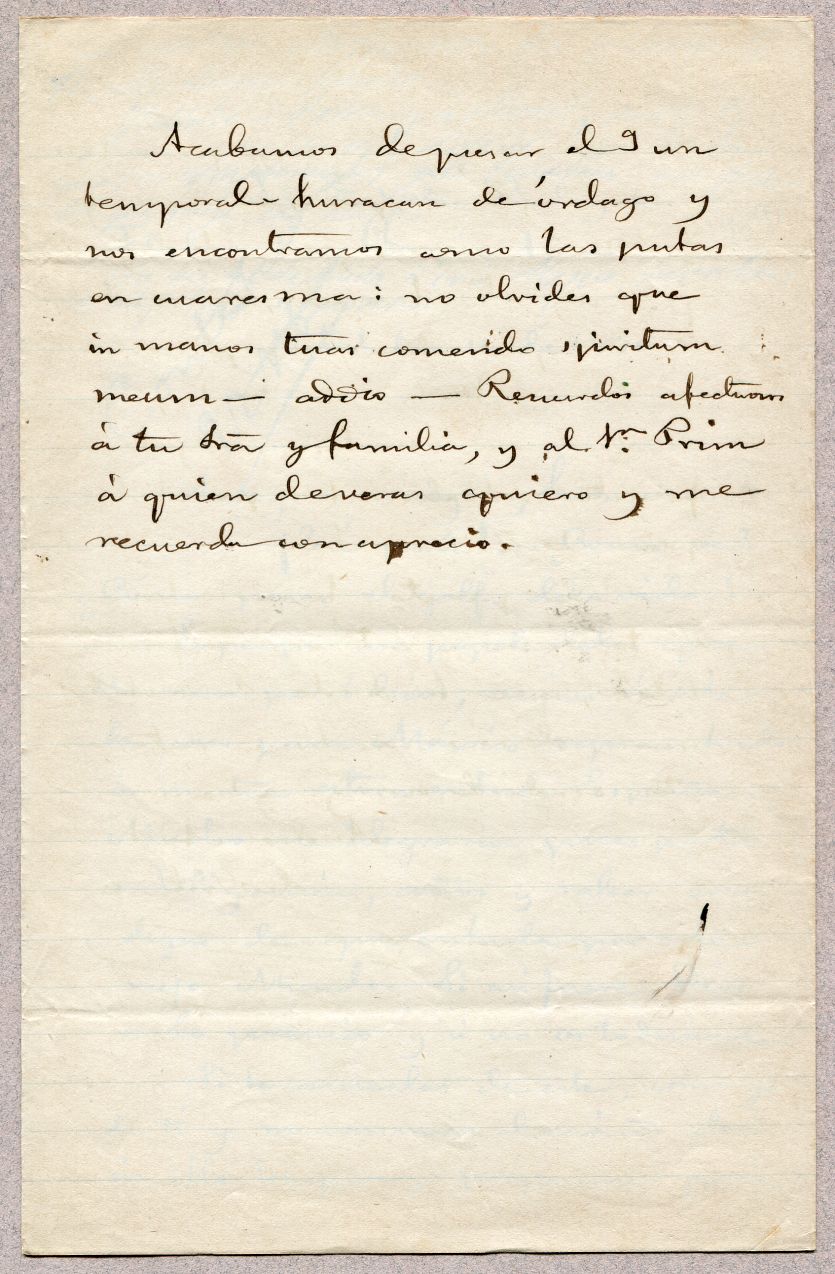 Acabamos de pasar el 9 un
temporal huracan de órdago y
nos encontramos como las putas
en cuaresma: no olvides que
in manos tuas comendo spiritum
meum — addio — Recuerdos afectuosos
á tu Sra y familia, y al Sr. Prim
á quien deveras quiero y me
recuerda con aprecio.